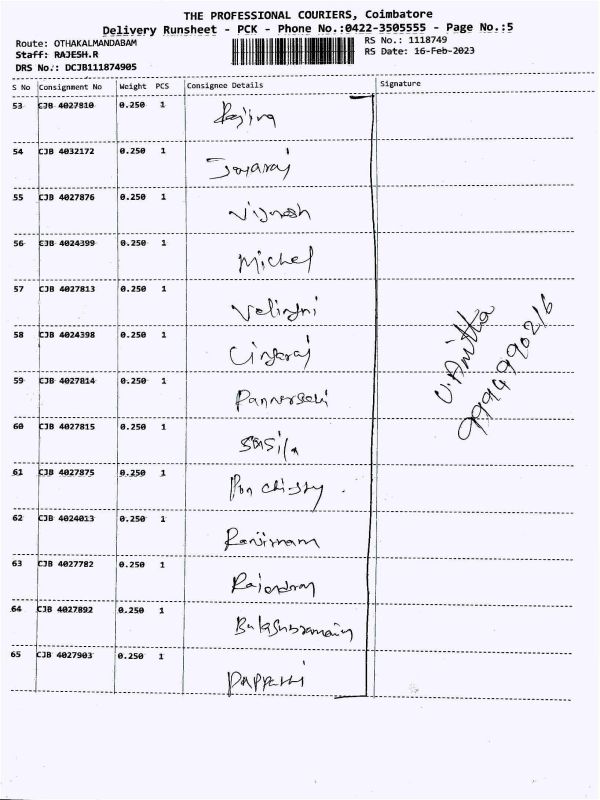 THE PROFESSIONAL COURIERS, Coimbatore
Delivery Runsheet - PCK - Phone No.:0422-3505555 - Page No.:5
Route: OTHAKALMANDABAM
Staff: RAJESH.R
DRS No.: DCJB111874905
RS No.: 1118749
RS Date: 16-Feb-2023
S No Consignment No Weight PCS Consignee Details Signature
53 CJB 4027810 0.250 1
54 CJB 4032172 0.250 1 Jayaraj
55 CJB 4027876 0.250 1 Vignesh
56 CJB 4024399 0.250 1 Michel
57 CJB 4027813 0.250 1
58 CJB 4024398 0.250 1
59 CJB 4027814 0.250 1
60 CJB 4027815 0.250 1
61 CJB 4027875 0.250 1
62 CJB 4024013 0.250 1
63 CJB 4027782 0.250 1 Rajendran
64 CJB 4027892 0.250 1
65 CJB 4027903 0.250 1
V. Anitha